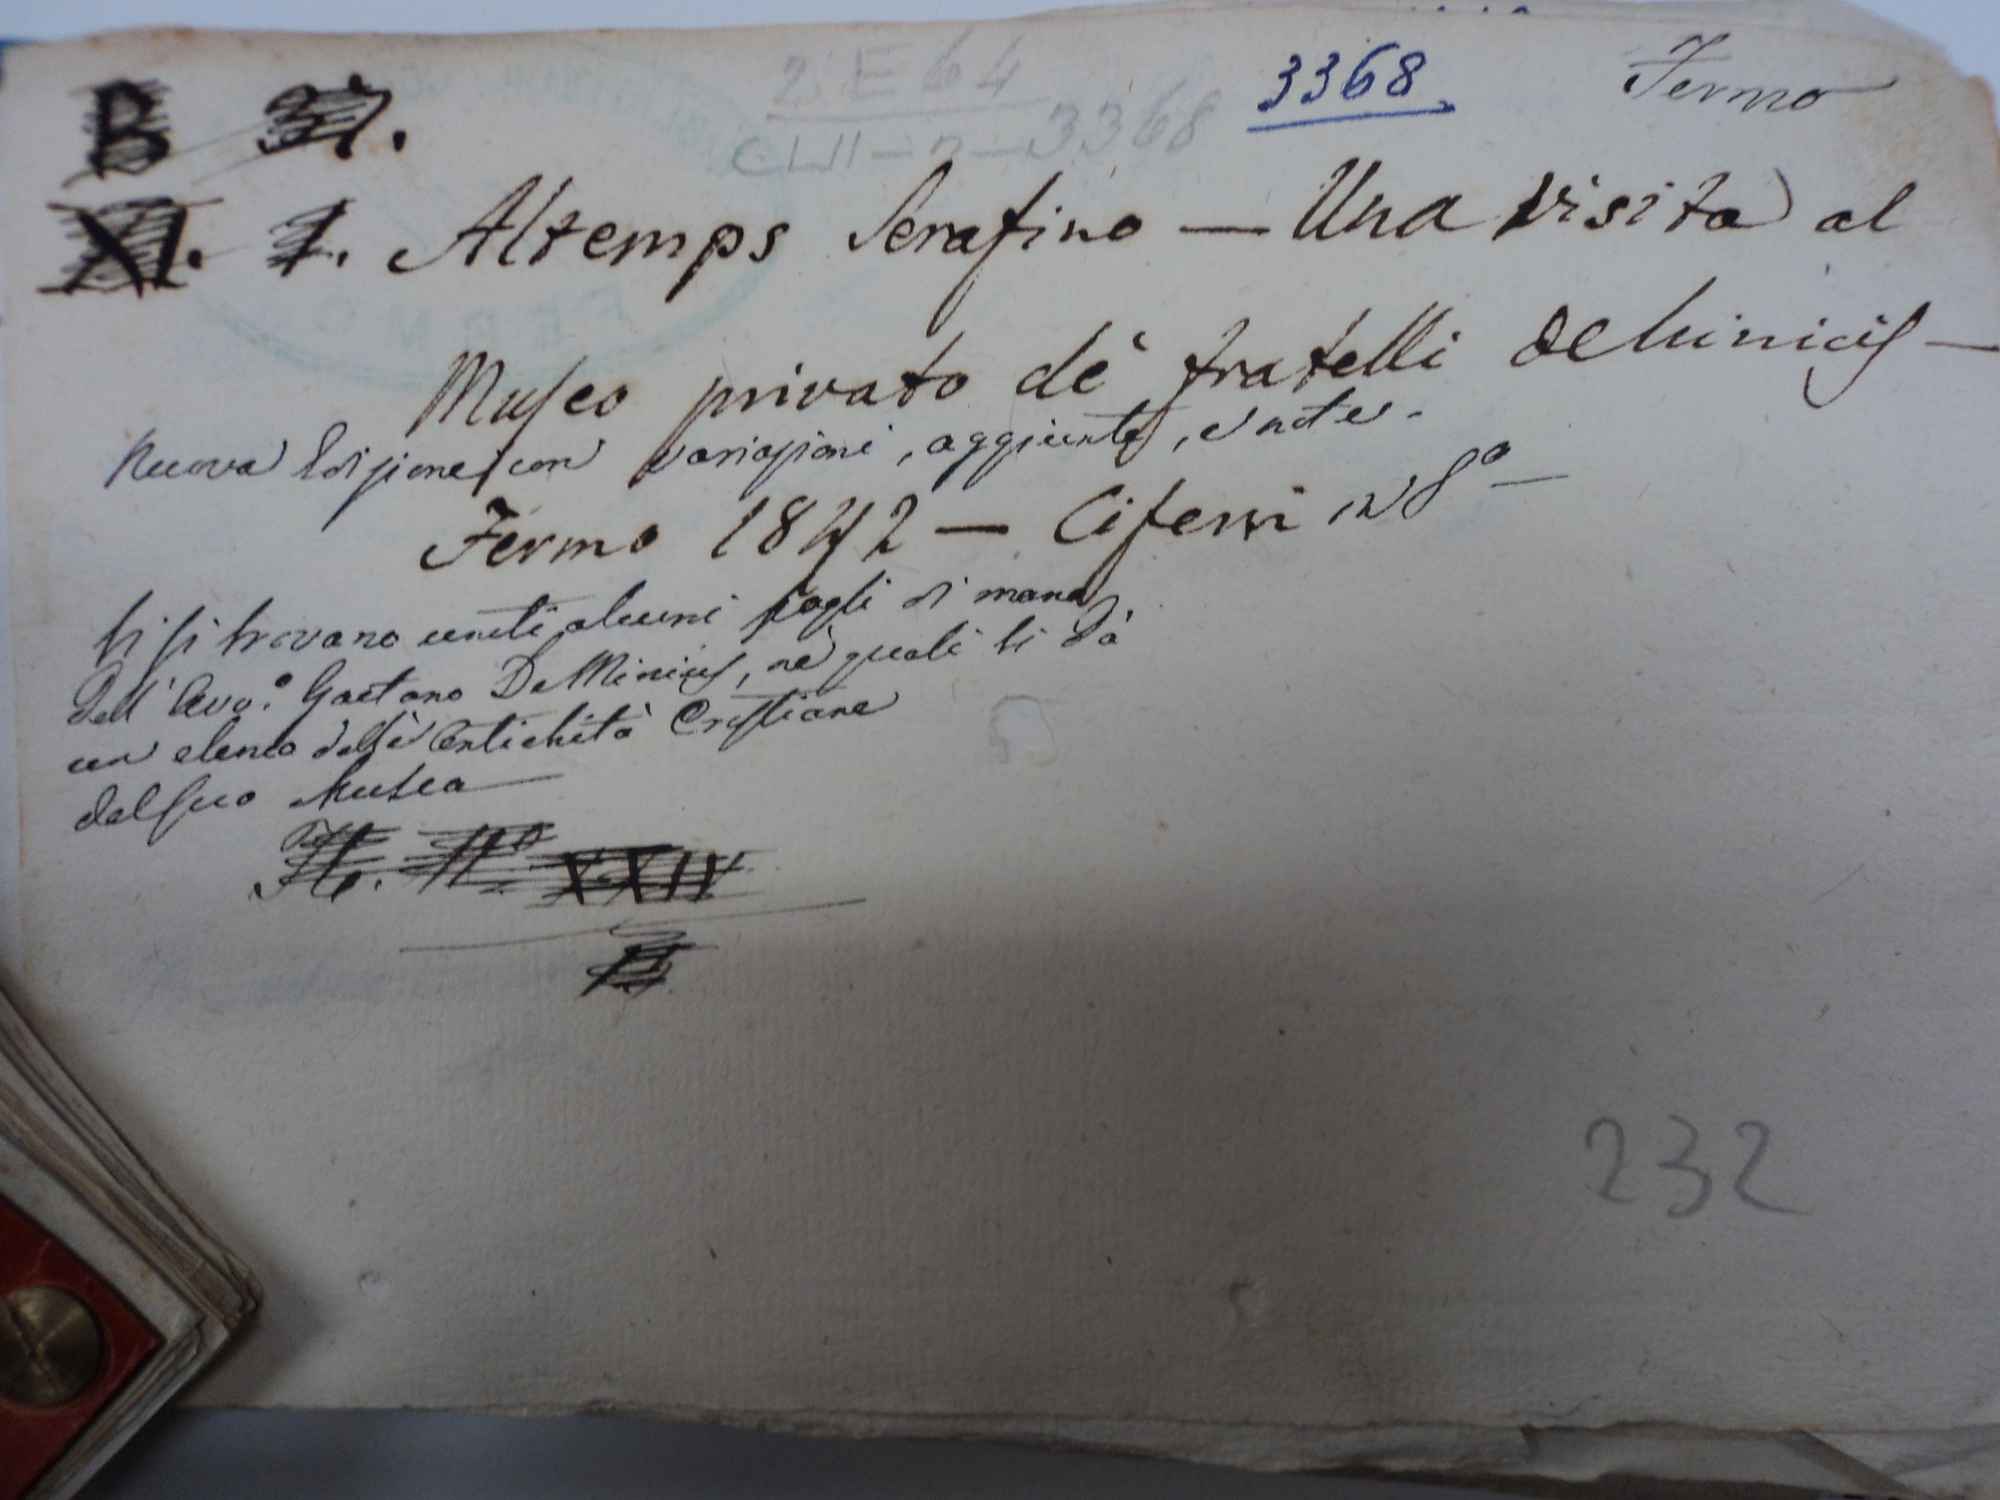 B 37.
2 E 64
3368
3368
Fermo
XI. 7. Altemps Serafino — Una visita al
Museo privato de' fratelli De Minicis —
Nuova Edizione con variazioni, aggiunte, e note.
Fermo 1842 — Ciferri in 8º —
Vi si trovano uniti alcuni fogli di mano
dell' Avv.º Gaetano De Minicis, ne' quali vi dà
un elenco delle Antichità Cristiane
del suo Museo —
XXIV
232
FERMO